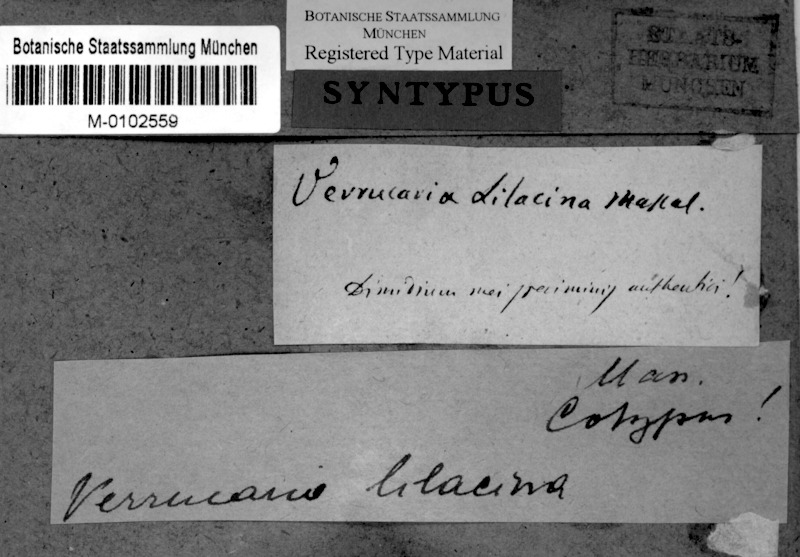 Botanische Staatssammlung München
M-0102559
BOTANISCHE STAATSSAMMLUNG
MÜNCHEN
Registered Type Material
SYNTYPUS
STAATS-
HERBARIUM
MÜNCHEN
Verrucaria Lilacina Massal.
Dimidium mei speciminis authentici!
Mass.
Cotypus!
Verrucaria lilacina